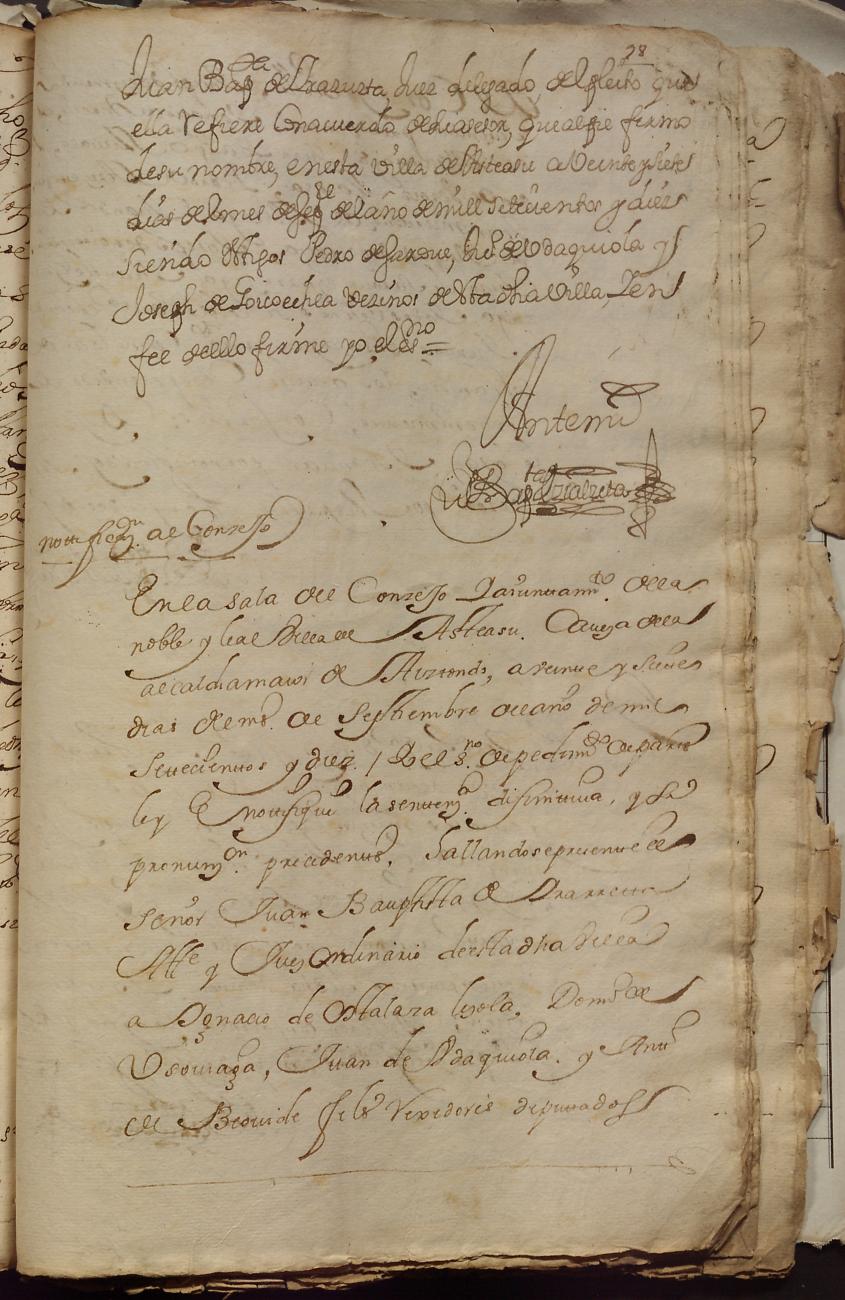 28
Juan Bapta de Yrazusta Juez delegado, del pleito que
ella refiere Con acuerdo de su asesor, que al pie firmo
de su nombre, en esta Villa de Asteasu a Veinte y siete
dias del mes de Sepre del año de mill setecientos y diez
siendo ttigos Pedro de , de Vdaquiola y
Joseph de Goicoechea Vezinos de sta dha Villa, y en
fee de ello firme yo el esno =
Antemi
Bapta
nottificon. al Conzejo
En la sala del Conzejo y aiuntamto. de la
noble y leal Villa de Asteasu. Caveza de la
alcaldia maior de Aiztondo, a veinte y siete
dias del ms. de Septiembre del año de mil
settecientos y diez. / Yo el sno. de pedimto de parte
ley e nottifique la sentenzia difinitiva, y su
pronunzon. precedente. hallandose presente el
señor Juan Bauptista de
Alle y Juez ordinario de esta dha Villa
a Ygnacio de loyola, Domo. de
Vsoviaga, Juan de Vdaquiola. y Anto
de Beovide regidores diputados